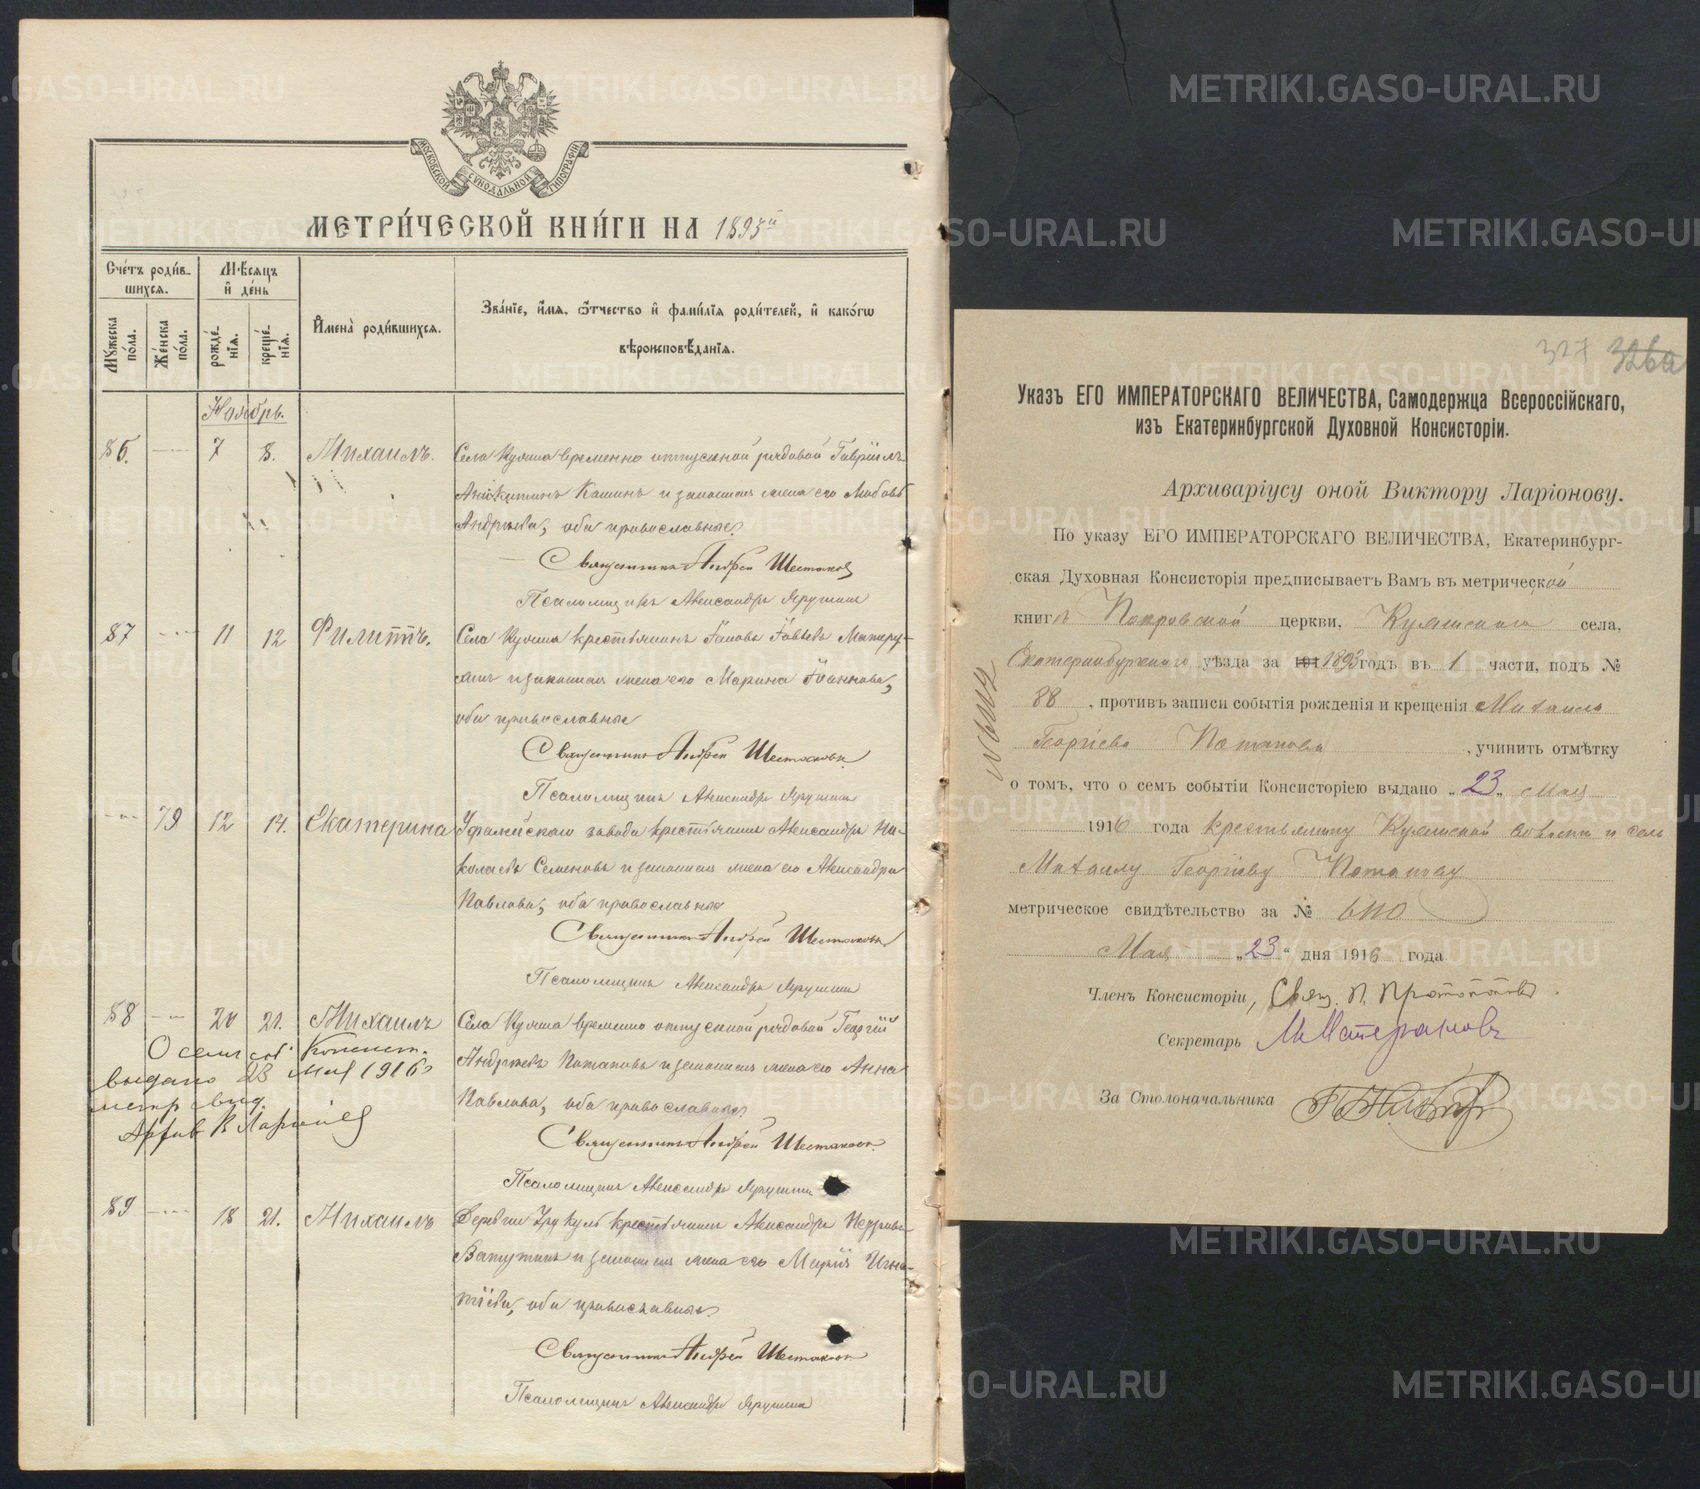 МОСКОВСКОЙ СѴНОДАЛЬНОЙ ТИПОГРАФІИ
МЕТРИ́ЧЕСКОЙ КНИ́ГИ НА 1893й
Счéтъ роди́вшихся.
Мѣ́сяцъ и де́нь
Имена̀ роди́вшихся.
Зва́нїе, и́мя, ѻ҆́тчество и҆ фами́лїя роди́телей, и҆ како́гѡ
вѣроисповѣ́данїя.
Му́жеска по́ла.
Же́нска по́ла.
рожде́нїя.
креще́нїя.
Ноябрь.
86. 7 8. Михаилъ. Села Куяша временно отпускной рядовой Гавріилъ
Кашинъ и законная жена его Любовь
Андреева, оба православные.
Священникъ Андрей Шестаковъ
Псаломщикъ Александръ Ярушинъ
87 11 12 Филиппъ. Села Куяша крестьянинъ
и законная жена его Марина Іоаннова,
оба православные
Священникъ Андрей Шестаковъ.
Псаломщикъ Александръ Ярушинъ
79 12 14. Екатерина Уфалейскаго завода крестьянинъ Александръ Ни-
колаевъ Семеновъ и законная жена его Александра
Павлова, оба православные
Священникъ Андрей Шестаковъ
Псаломщикъ Александръ Ярушинъ
88 20 21. Михаилъ Села Куяша временно отпускной рядовой Георгій
Андреевъ Потаповъ и законная жена его Анна
Павлова, оба православные
О семъ соб. Консист.
выдано 23 Мая 1916 г
метр. свид.
Архив. В Ларіоновъ
Священникъ Андрей Шестаковъ.
Псаломщикъ Александръ Ярушинъ
89 18 21. Михаилъ Деревни крестьянинъ Александръ
Ватутинъ и законная жена его Марія Игна-
тіева, оба православные.
Священникъ Андрей Шестаковъ
Псаломщикъ Александръ Ярушинъ
327 326а
Указъ ЕГО ИМПЕРАТОРСКАГО ВЕЛИЧЕСТВА, Самодержца Всероссійскаго,
изъ Екатеринбургской Духовной Консисторіи.
Архиваріусу оной Виктору Ларіонову.
По указу ЕГО ИМПЕРАТОРСКАГО ВЕЛИЧЕСТВА, Екатеринбург-
ская Духовная Консисторія предписываетъ Вамъ въ метрической
книгѣ Покровской церкви, Куяшскаго села,
Екатеринбургскаго уѣзда за 191 1893 годъ въ 1 части, подъ №
88, противъ записи событія рожденія и крещенія Михаила
Георгіева Потапова, учинить отмѣтку
о томъ, что о семъ событіи Консисторіею выдано „23„ Мая
1916 года крестьянину Куяшской волости и села
Михаилу Георгіеву Потапову
метрическое свидѣтельство за № 6110
Мая „23“ дня 1916 года
Членъ Консисторіи, Свящ. П. Протопоповъ.
Секретарь
За Столоначальника
METRIKI.GASO-URAL.RU